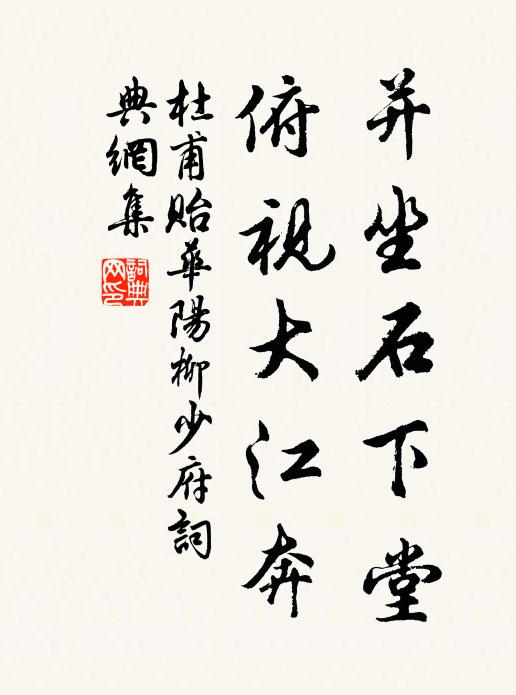 并坐石下堂
俯視大江奔
杜甫貽華陽柳少府詞
典網集
詞典
网印